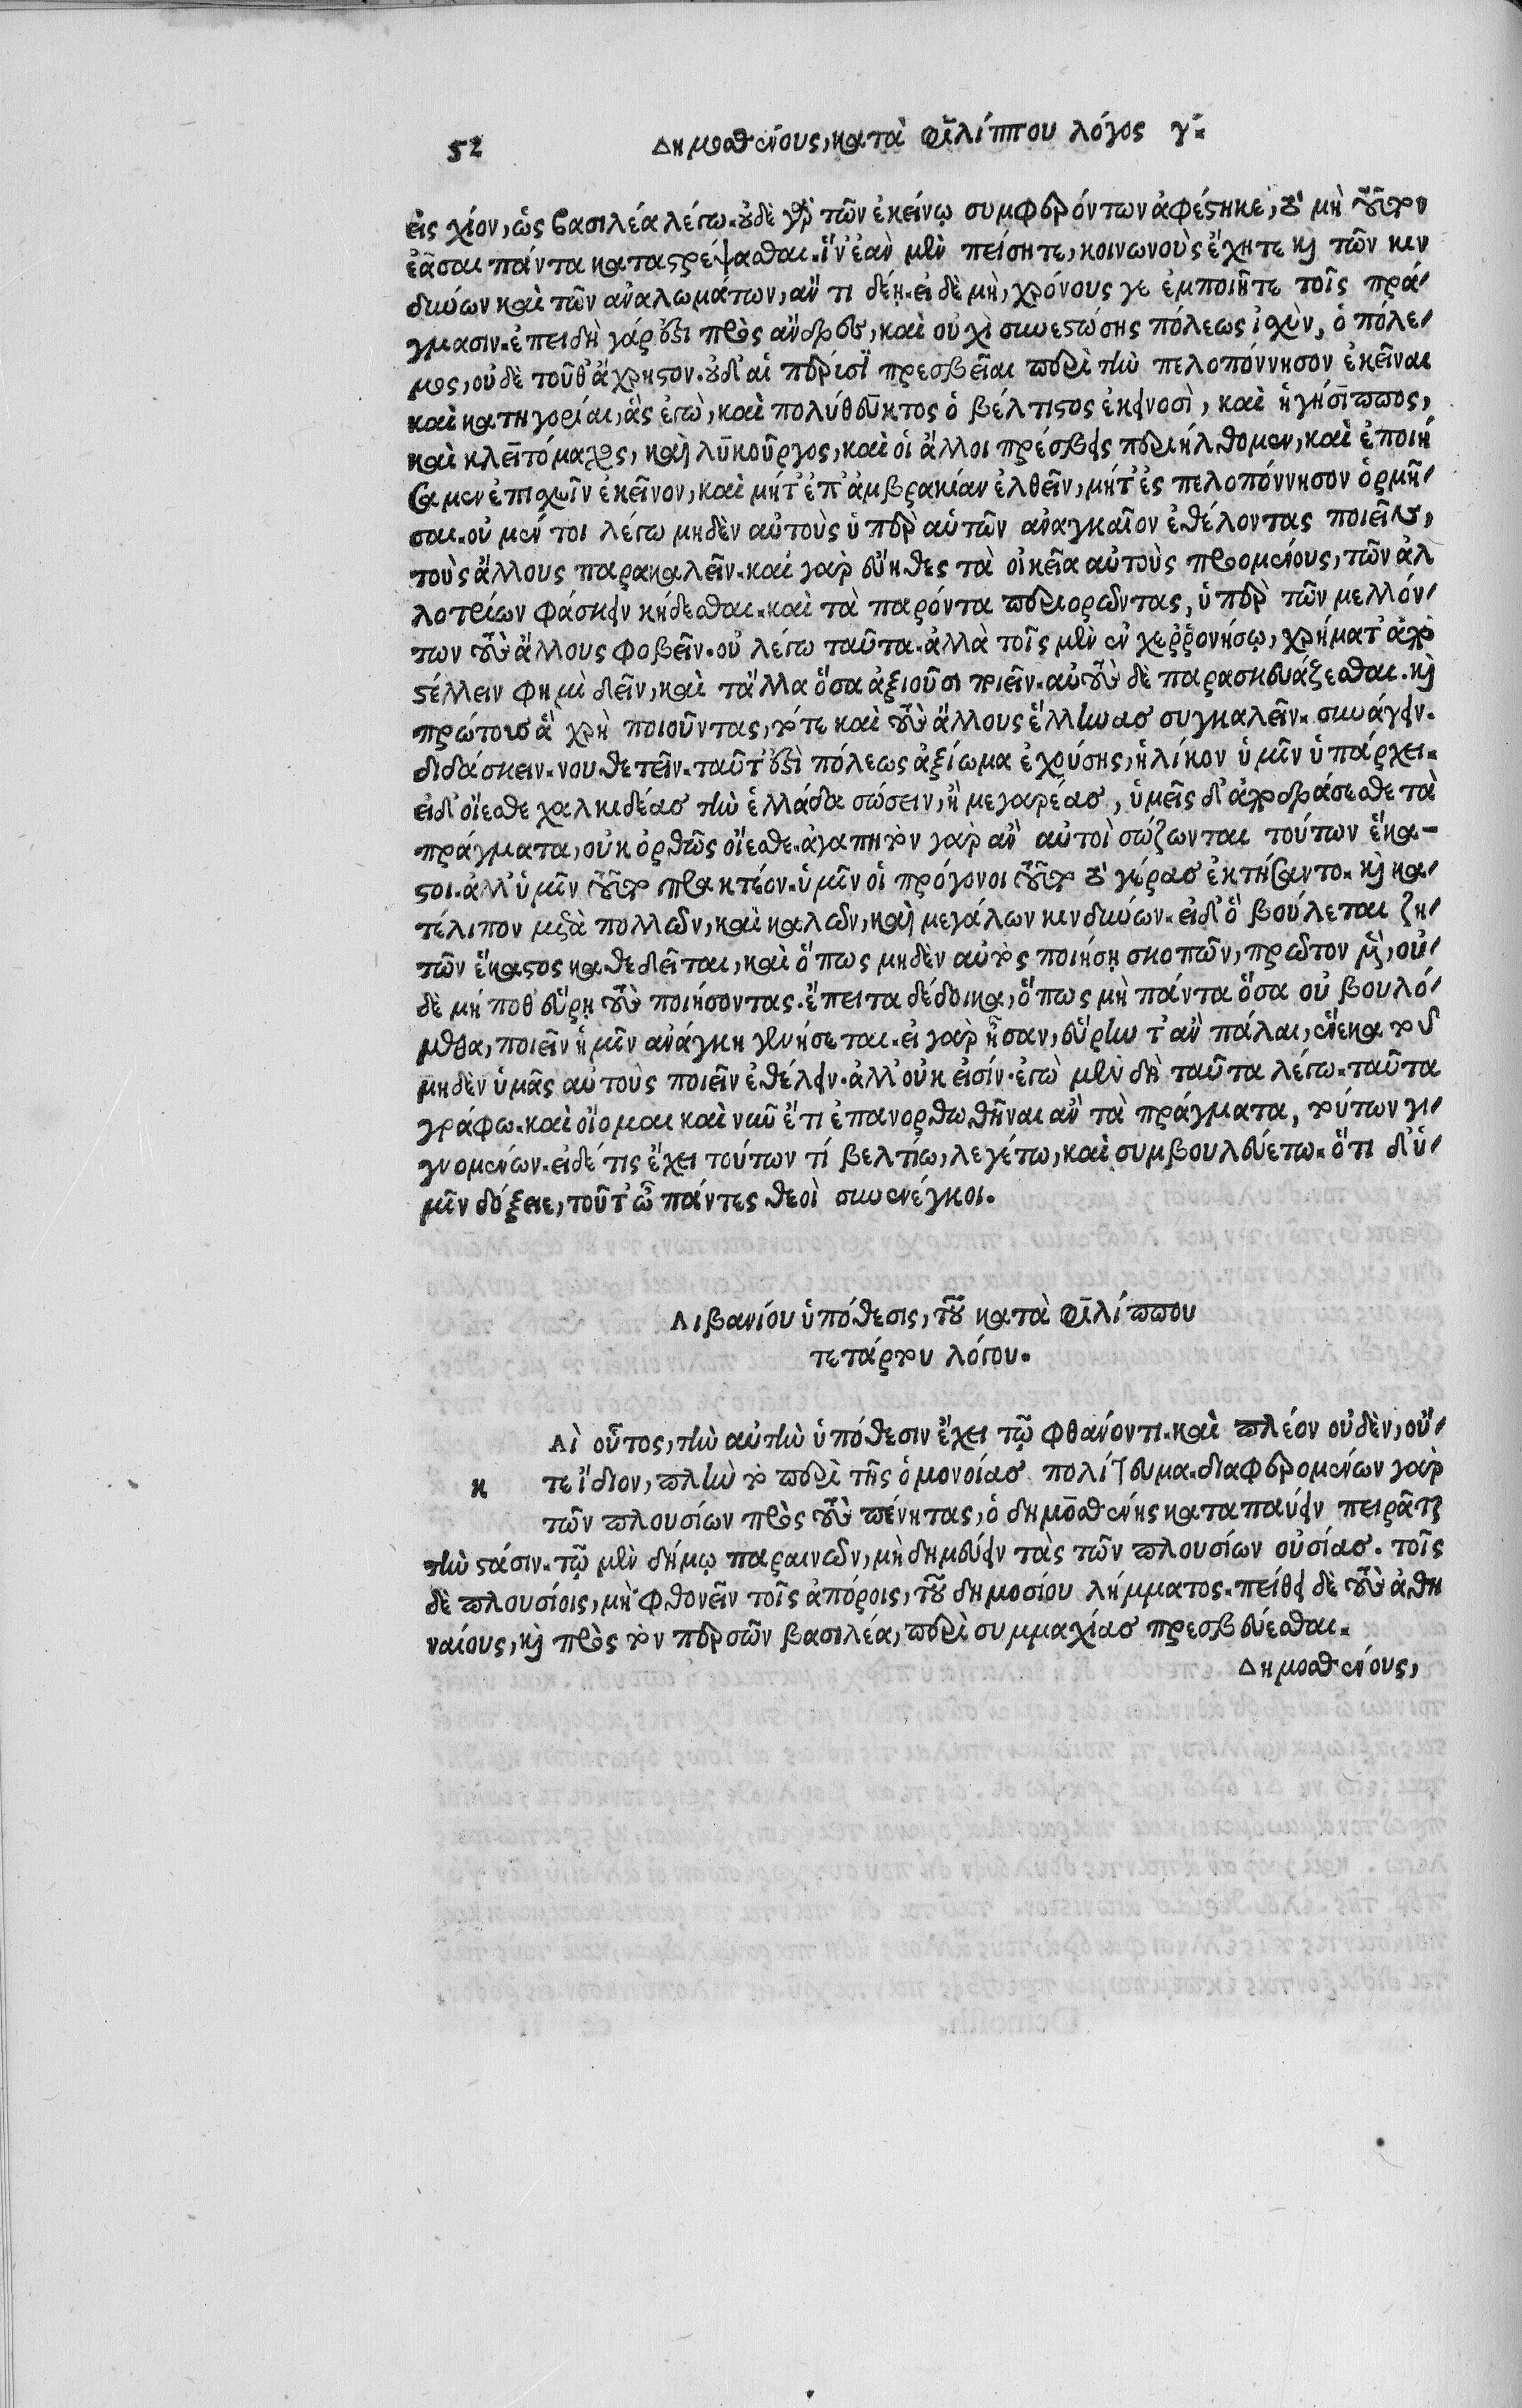 52 Δημοσθένους, κατὰ Φιλίππου λόγος γ´.
εἰς χίον, ὡς βασιλέα λέγω. οὐδὲ γὰρ τῶν ἐκείνῳ συμφερόντων ἀφέστηκε, τὸ μὴ τοῦτον
ἐᾶσαι πάντα καταστρέψασθαι. ἵν' ἐὰν μὲν πείσητε, κοινωνοὺς ἔχητε καὶ τῶν κιν
δύνων καὶ τῶν ἀναλωμάτων, ἄν τι δέῃ. εἰ δὲ μὴ, χρόνους γε ἐμποιῆτε τοῖς πρά-
γμασιν. ἐπειδὴ γάρ ἐστι πρὸς ἄνδρα, καὶ οὐχὶ συνεστώσης πόλεως ἰσχὺν, ὁ πόλε-
μος, οὐδὲ τοῦθ' ἄχρηστον. οὐδ' αἱ πέρισι πρεσβεῖαι περὶ τὴν πελοπόννησον ἐκεῖναι
καὶ κατηγορίαι, ἃς ἐγὼ, καὶ πολύευκτος ὁ βέλτιστος ἐκεινοσὶ, καὶ ἡγήσιππος,
καὶ κλειτόμαχος, καὶ λυκοῦργος, καὶ οἱ ἄλλοι πρέσβεις περιήλθομεν, καὶ ἐποιή
σαμεν ἐπισχεῖν ἐκεῖνον, καὶ μήτ' ἐπ' ἀμβρακίαν ἐλθεῖν, μήτ' ἐς πελοπόννησον ὁρμῆ-
σαι. οὐ μέν τοι λέγω μηδὲν αὐτοὺς ὑπὲρ αὑτῶν ἀναγκαῖον ἐθέλοντας ποιεῖν,
τοὺς ἄλλους παρακαλεῖν. καὶ γὰρ εὔηθες τὰ οἰκεῖα αὐτοὺς προεμένους, τῶν ἀλ
λοτρίων φάσκειν κήδεσθαι. καὶ τὰ παρόντα περιορῶντας, ὑπὲρ τῶν μελλόν-
των τοὺς ἄλλους φοβεῖν. οὐ λέγω ταῦτα. ἀλλὰ τοῖς μὲν ἐν χερρονήσῳ, χρήματ' ἀπο
στέλλειν φημὶ δεῖν, καὶ τἄλλα ὅσα ἀξιοῦσι ποιεῖν. αὐτοὺς δὲ παρασκευάζεσθαι. καὶ
πρώτους ἃ χρὴ ποιοῦντας, τότε καὶ τοὺς ἄλλους ἕλληνας συγκαλεῖν. συνάγειν.
διδάσκειν. νουθετεῖν. ταῦτ' ἐστὶ πόλεως ἀξίωμα ἐχούσης, ἡλίκον ὑμῖν ὑπάρχει.
εἰ δ' οἴεσθε χαλκιδέας τὴν ἑλλάδα σώσειν, ἢ μεγαρέας, ὑμεῖς δ' ἀποδράσεσθε τὰ
πράγματα, οὐκ ὀρθῶς οἴεσθε. ἀγαπητὸν γὰρ ἂν αὐτοὶ σώζωνται τούτων ἕκα-
στοι. ἀλλ' ὑμῖν τοῦτο πρακτέον. ὑμῖν οἱ πρόγονοι τοῦτο τὸ γέρας ἐκτήσαντο. καὶ κα-
τέλιπον μετὰ πολλῶν, καὶ καλῶν, καὶ μεγάλων κινδύνων. εἰ δ' ὃ βούλεται ζη-
τῶν ἕκαστος καθεδεῖται, καὶ ὅπως μηδὲν αὐτὸς ποιήσῃ σκοπῶν, πρῶτον μὲν, οὐ-
δὲ μή ποθ' εὕρῃ τοὺς ποιήσοντας. ἔπειτα δέδοικα, ὅπως μὴ πάντα ὅσα οὐ βουλό-
μεθα, ποιεῖν ἡμῖν ἀνάγκη γενήσεται. εἰ γὰρ ἦσαν, εὕρηντ' ἂν πάλαι, ἕνεκα τοῦ
μηδὲν ὑμᾶς αὐτοὺς ποιεῖν ἐθέλειν. ἀλλ' οὐκ εἰσίν. ἐγὼ μὲν δὴ ταῦτα λέγω. ταῦτα
γράφω. καὶ οἴομαι καὶ νῦν ἔτι ἐπανορθωθῆναι ἂν τὰ πράγματα, τούτων γι-
γνομένων. εἰ δέ τις ἔχει τούτων τί βελτίω, λεγέτω, καὶ συμβουλευέτω. ὅτι δ' ὑ-
μῖν δόξειε, τοῦτ' ὦ πάντες θεοὶ συνενέγκοι.
Λιβανίου ὑπόθεσις, τοῦ κατὰ Φιλίππου
τετάρτου λόγου.
ΑΙ οὗτος, τὴν αὐτὴν ὑπόθεσιν ἔχει τῷ φθάνοντι. καὶ πλέον οὐδὲν, οὔ-
κ τε ἴδιον, πλὴν τὸ περὶ τῆς ὁμονοίας πολίτευμα. διαφερομένων γὰρ
τῶν πλουσίων πρὸς τοὺς πένητας, ὁ δημοσθένης καταπαύειν πειρᾶται
τὴν στάσιν. τῷ μὲν δήμῳ παραινῶν, μὴ δημεύειν τὰς τῶν πλουσίων οὐσίας. τοῖς
δὲ πλουσίοις, μὴ φθονεῖν τοῖς ἀπόροις, τοῦ δημοσίου λήμματος. πείθει δὲ τοὺς ἀθη
ναίους, καὶ πρὸς τὸν περσῶν βασιλέα, περὶ συμμαχίας πρεσβεύεσθαι.
Δημοσθένους,